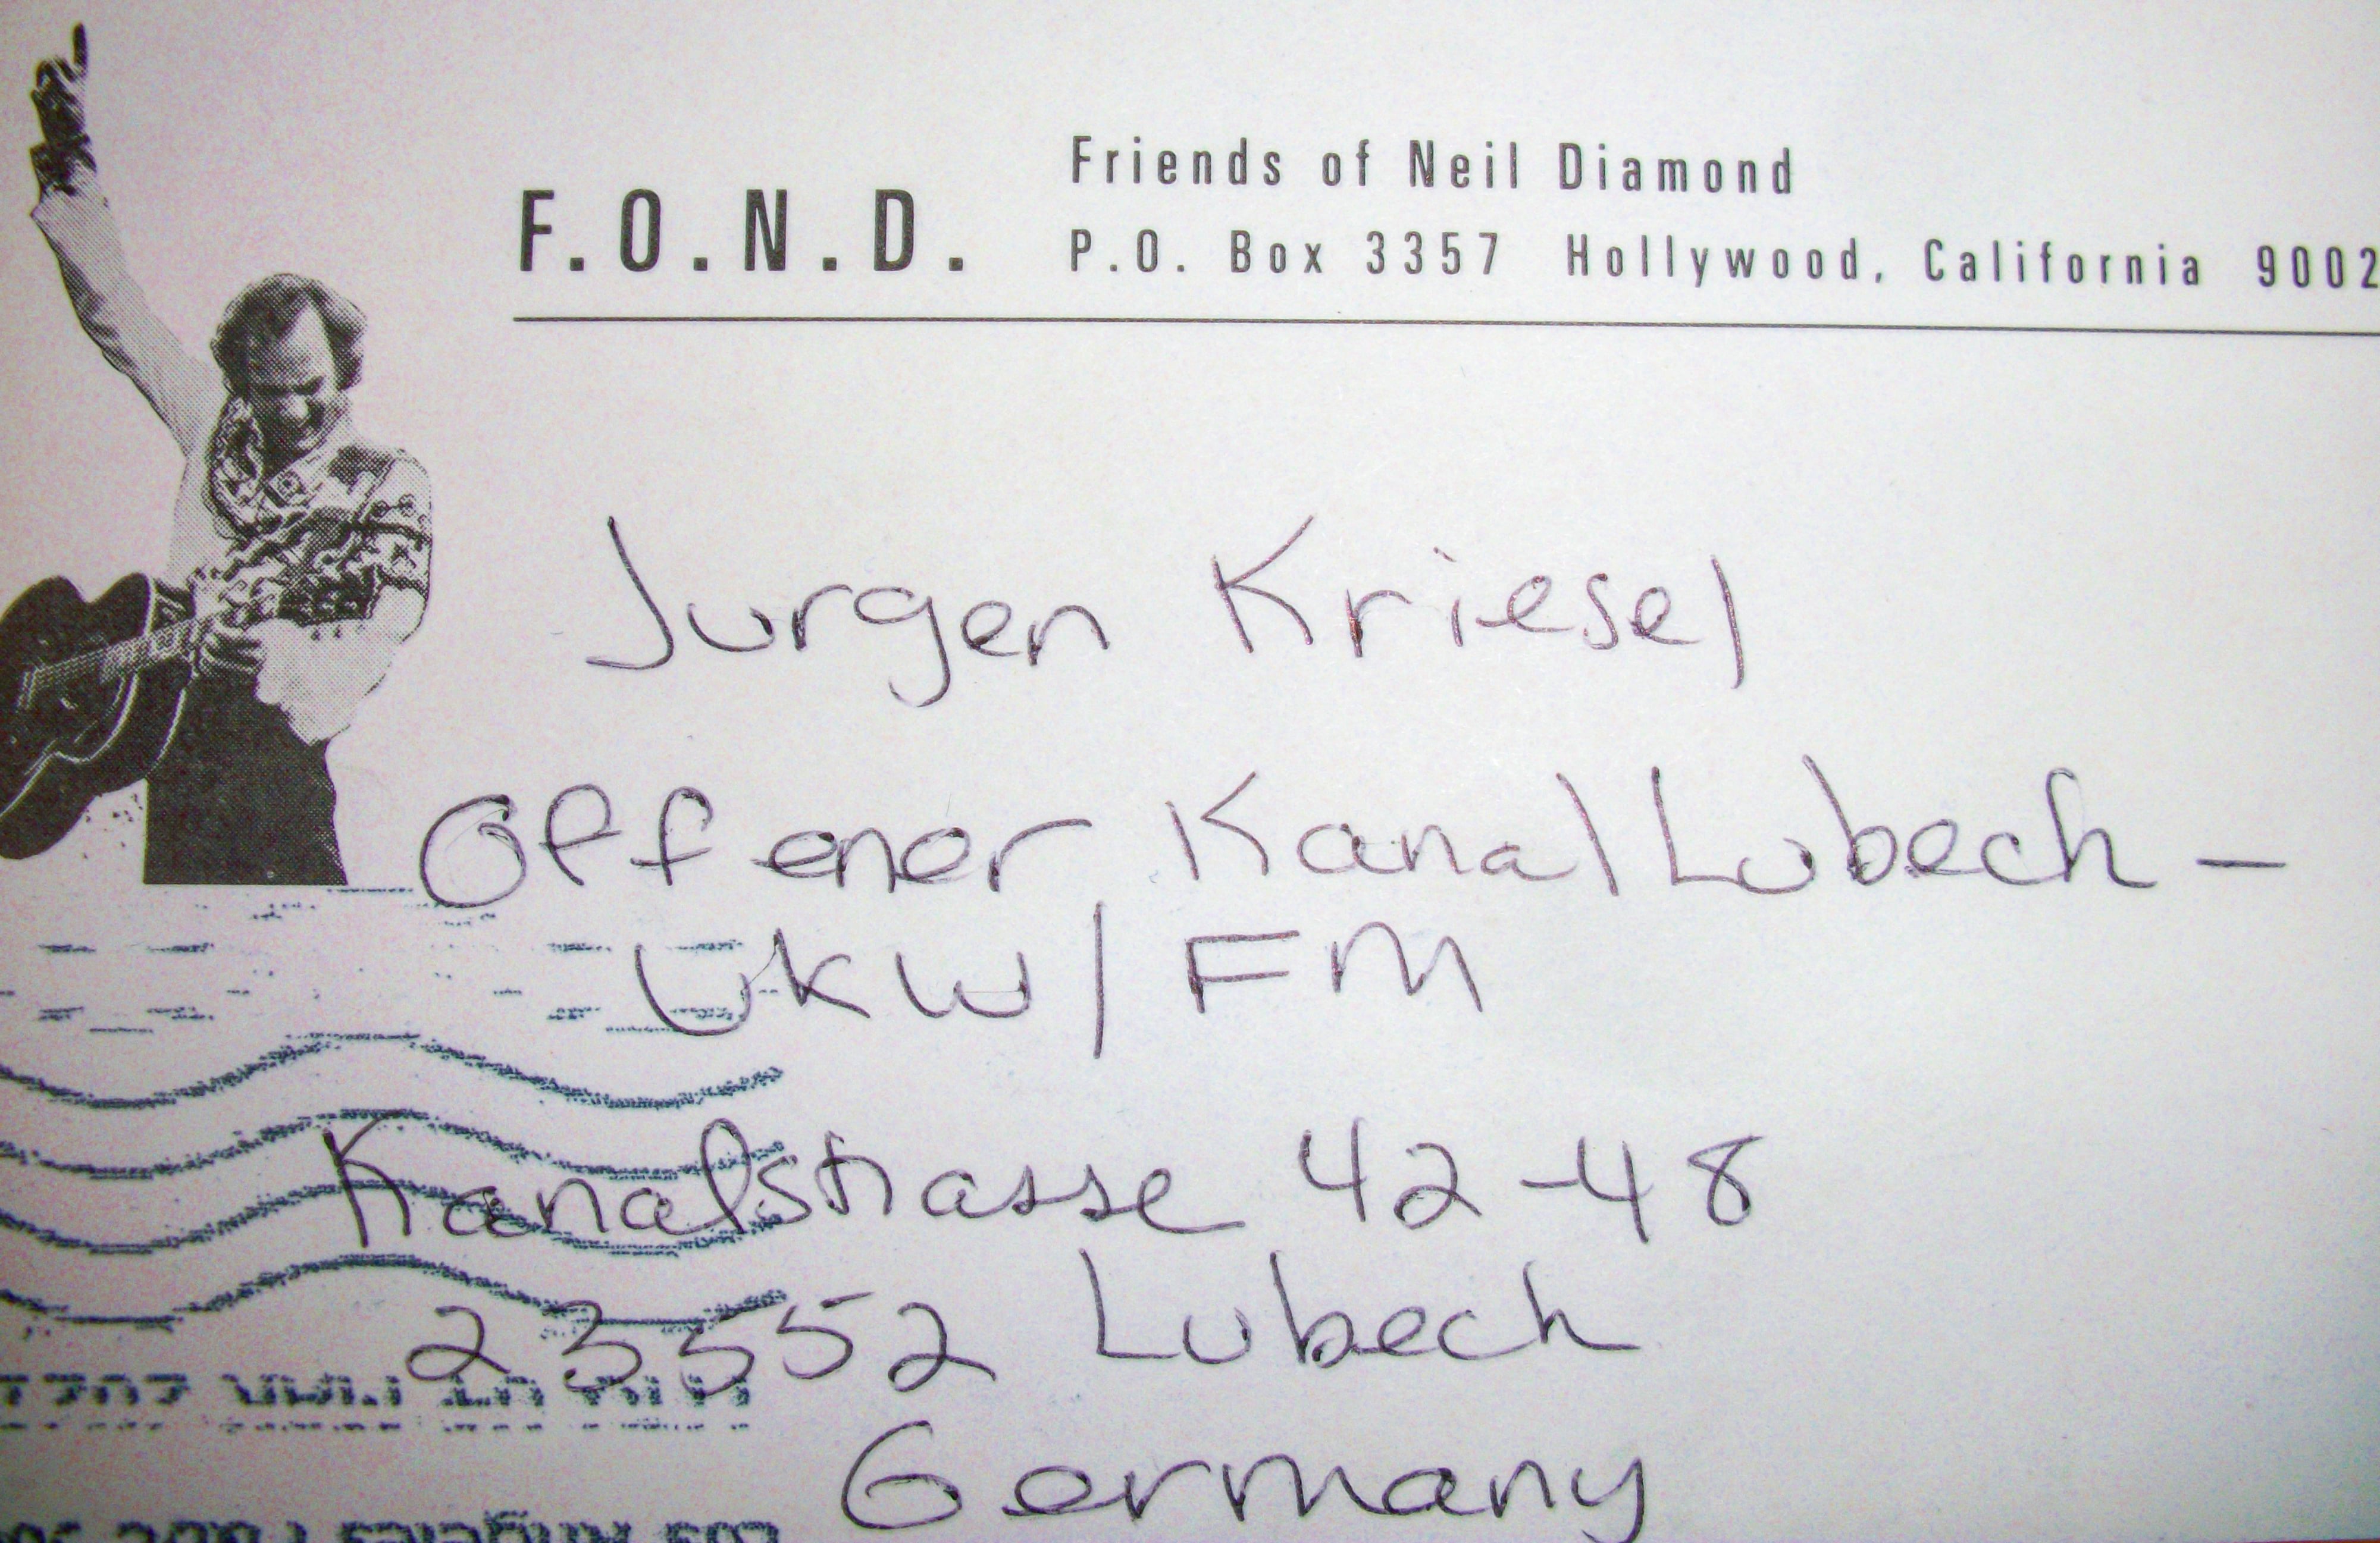 Friends of Neil Diamond
F.O.N.D.
P.O. Box 3357 Hollywood, California 9002
Jurgen Kriesel
Offener Kanal Lubech -
UKW/FM
Kanalstrasse 42-48
23552 Lubech
Germany